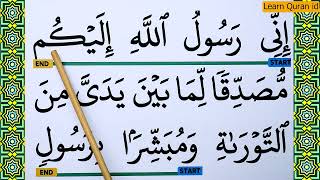 Learn Quran id
إِنِّى رَسُولُ ٱللَّهِ إِلَيْكُم
END START
مُّصَدِّقًا لِّمَا بَيْنَ يَدَىَّ مِنَ
ٱلتَّوْرَىٰةِ وَمُبَشِّرًۢا بِرَسُولٍ
END START